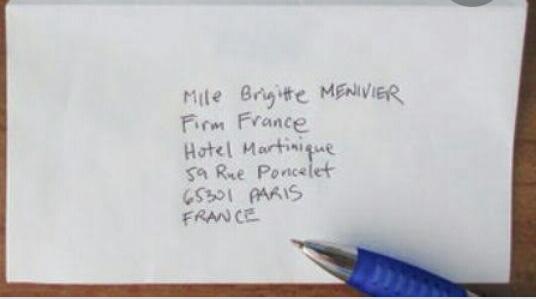 Mlle Brigitte MENIVIER
Firm France
Hotel Martinique
59 Rue Poncelet
65301 PARIS
FRANCE